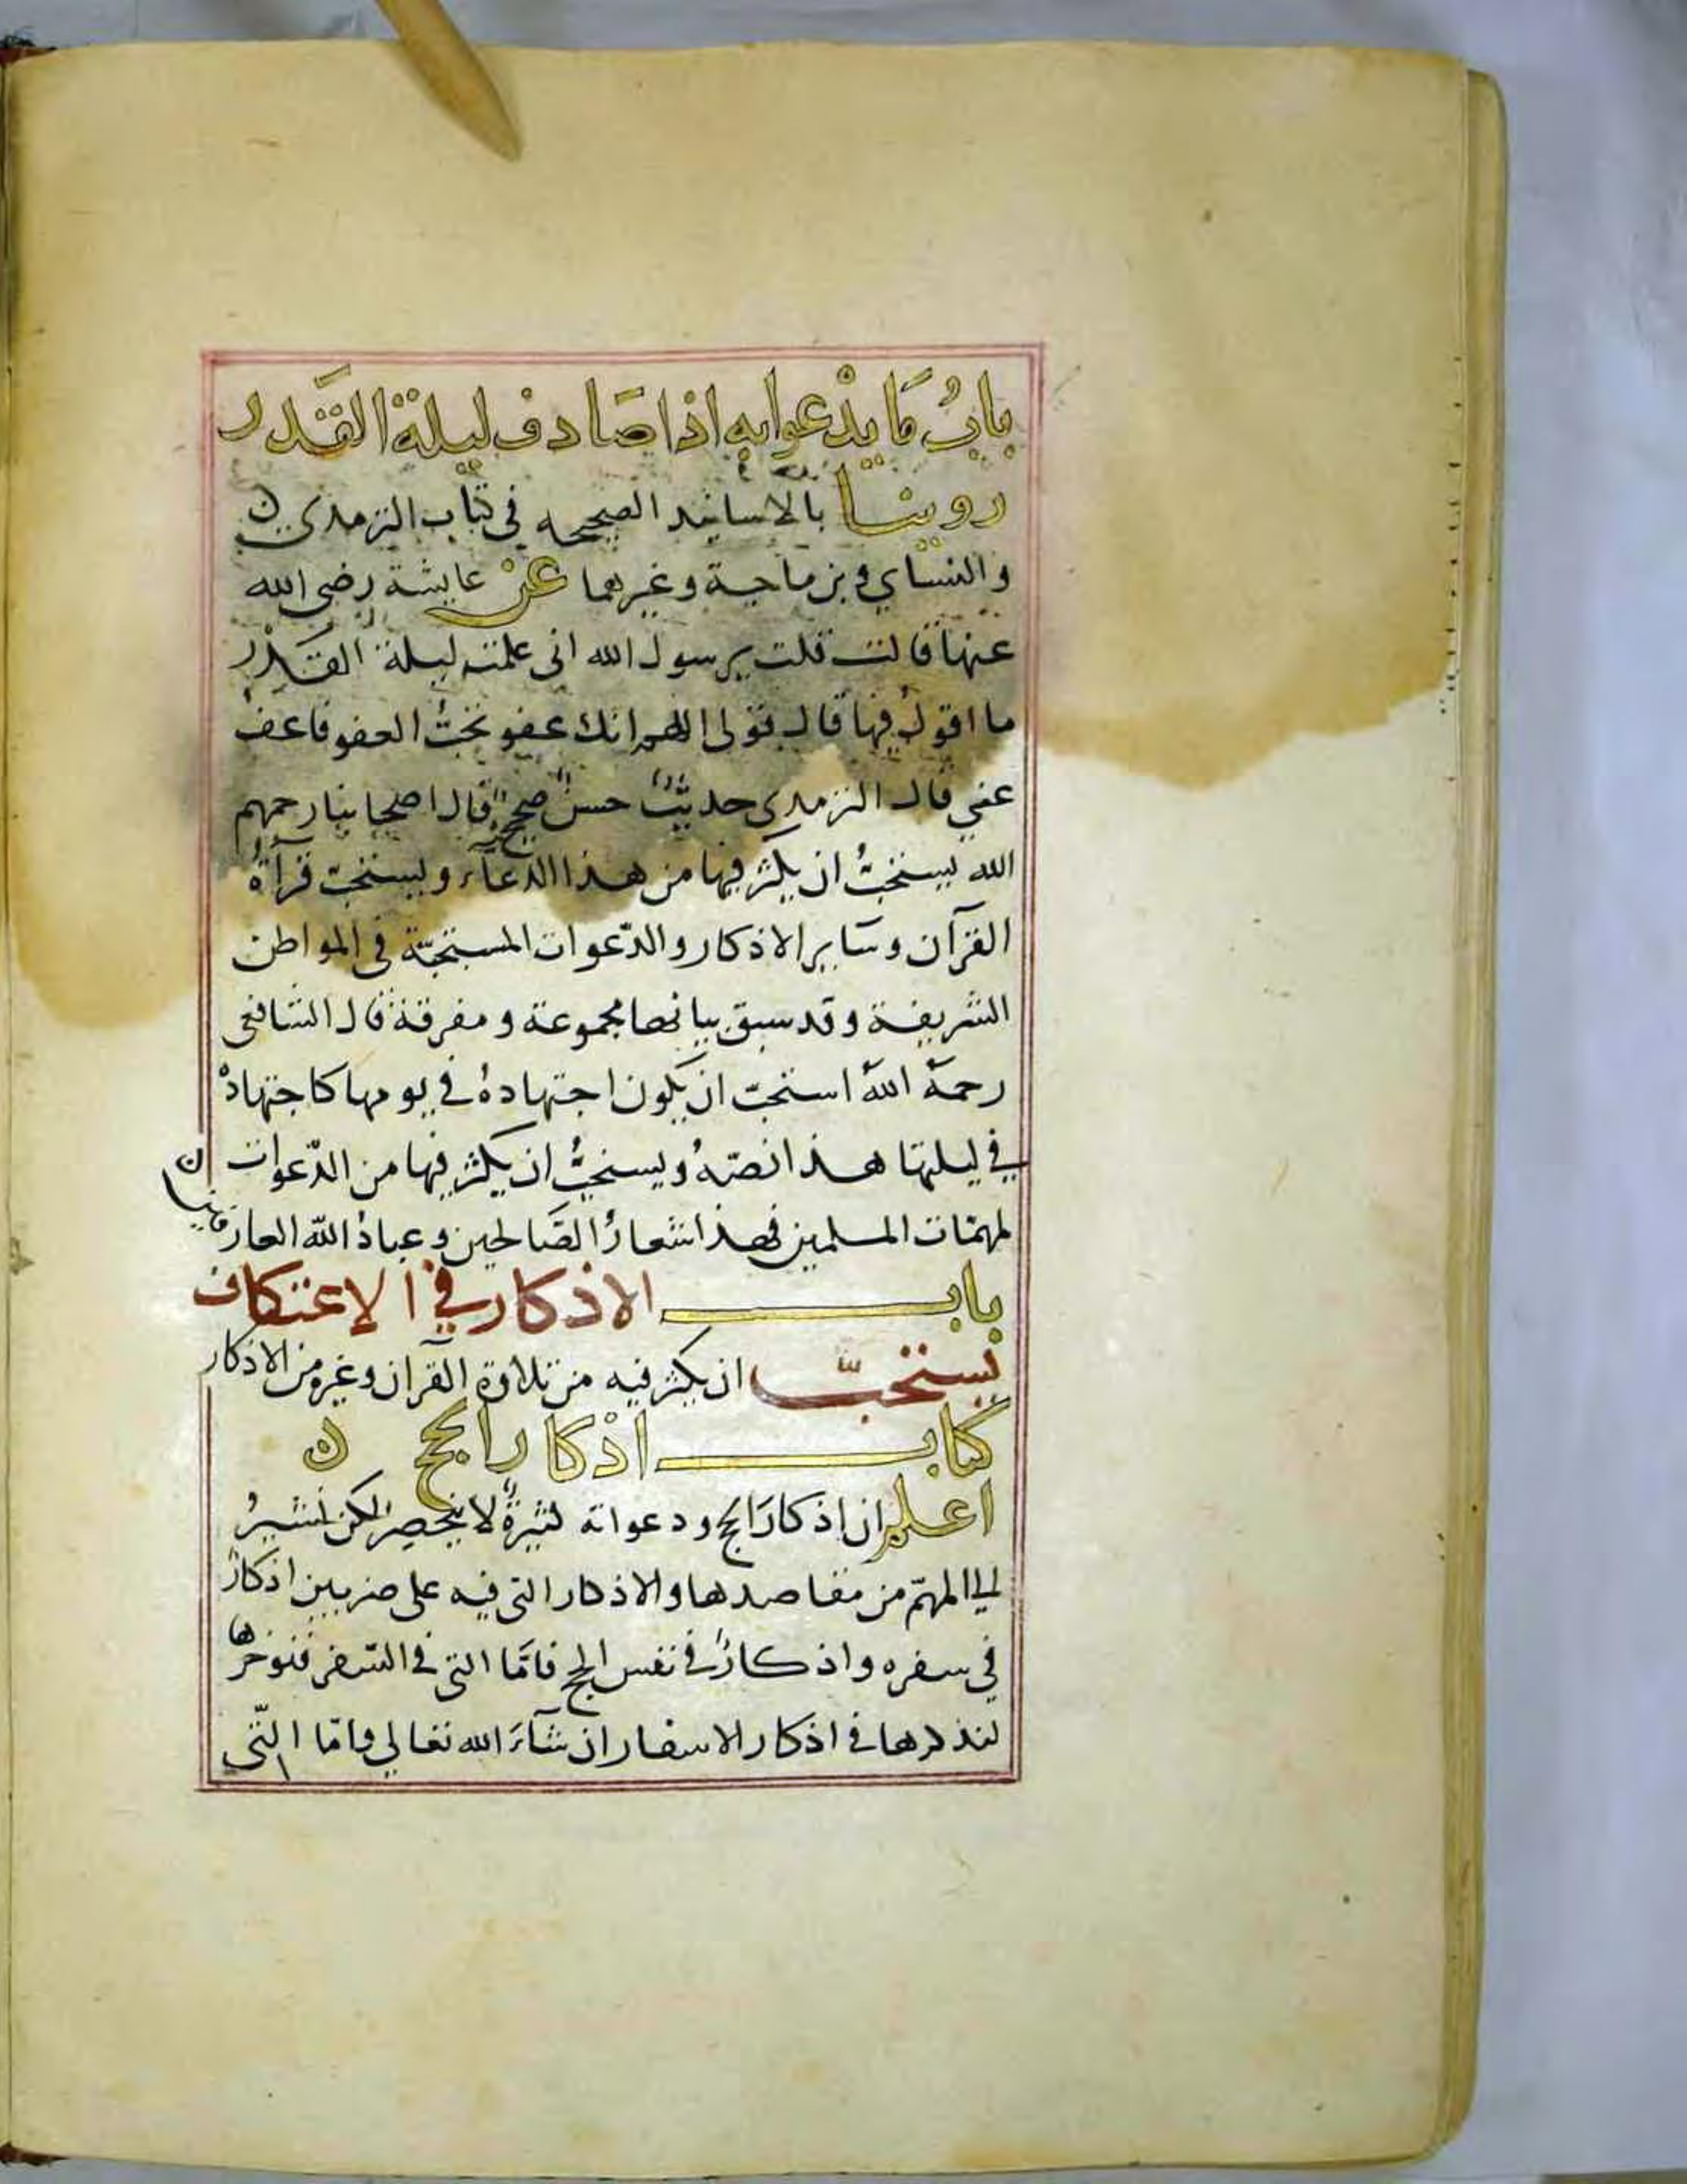 بابُ مَا يدْعوا به اذا صَادف ليلة القَدر
روينا بالاسانيد الصحيحه في كتاب الترمذي ن
والنساي وبن ماجة وغيرهما عن عايشة رضي الله
عنها قالت قلت يرسول الله اني علمت ليلة القَدْر
ما اقولُ فيها قال قولي اللهم انك عفو تحبُّ العفو فاعفُ
عني قال الترمدي حديثٌ حسنٌ صحيحٌ قال اصحابنا رحمهم
الله يستحبُّ ان يكثر فيها من هذا الدّعآء ويستحبّ قرآةُ
القرآن وسَاير الاذكار والدّعوات المستحبّة في المواطن
الشريفة وقد سبق بيانها مجموعة ومفرقة قال الشافعي
رحمهُ اللهُ استحبّ ان يكون اجتهادهُ في يومها كاجتهادهْ
في ليلتها هذا نصّهُ ويستحبُّ ان يكثر فيها من الدّعوات ن
لمهمّات المسلمين فهذا شعارُ الصَالحين وعبادُ الله العارفين
باب الاذكار في الاعتكاف
يستحبّ ان يكثر فيه من تلاوة القرآن وغيره من الاذكار
كتاب اذْكار الحج ن
اعلم ان اذكارَ الحج ودعواته كثيرةٌ لا ينحصر لكن نشيرُ
الي المهمّ من مقاصدها والاذكار التي فيه على ضربين اذكارٌ
في سفره واذكارٌ في نفس الحج فامّا التي في السّفر فنوخرُها
لنذكرها في اذكار الاسفار ان شآءَ الله تعالي وامّا الّتى